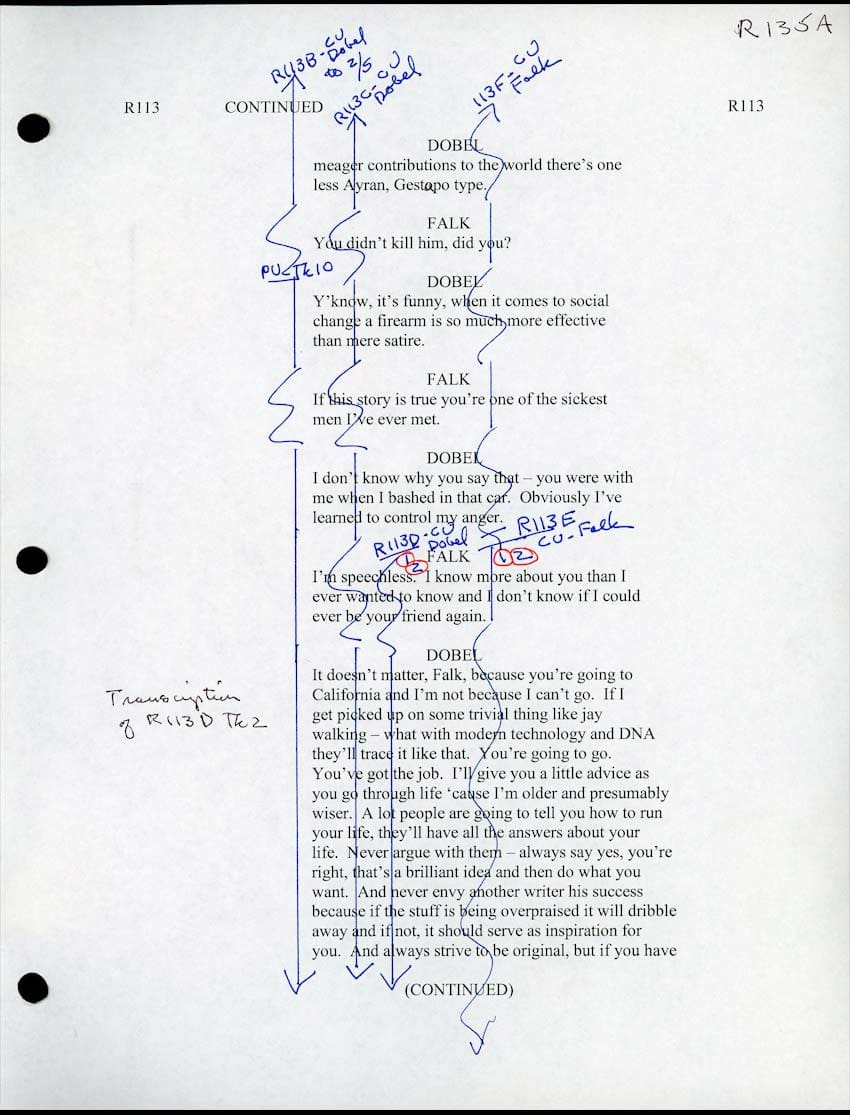 R135A
R113B-CU
Dobel
to 2/5
R113C-CU
Dobel
113F-CU
Falk
R113 CONTINUED R113
DOBEL
meager contributions to the world there's one
less Ayran, Gestapo type.
FALK
You didn't kill him, did you?
PU-TK10
DOBEL
Y'know, it's funny, when it comes to social
change a firearm is so much more effective
than mere satire.
FALK
If this story is true you're one of the sickest
men I've ever met.
DOBEL
I don't know why you say that – you were with
me when I bashed in that car. Obviously I've
learned to control my anger.
R113D-CU
Dobel
1 2
R113E
CU-Falk
1 2
FALK
I'm speechless. I know more about you than I
ever wanted to know and I don't know if I could
ever be your friend again.
DOBEL
It doesn't matter, Falk, because you're going to
California and I'm not because I can't go. If I
get picked up on some trivial thing like jay
walking – what with modern technology and DNA
they'll trace it like that. You're going to go.
You've got the job. I'll give you a little advice as
you go through life 'cause I'm older and presumably
wiser. A lot people are going to tell you how to run
your life, they'll have all the answers about your
life. Never argue with them – always say yes, you're
right, that's a brilliant idea and then do what you
want. And never envy another writer his success
because if the stuff is being overpraised it will dribble
away and if not, it should serve as inspiration for
you. And always strive to be original, but if you have
Transcription
of R113D Tk2
(CONTINUED)